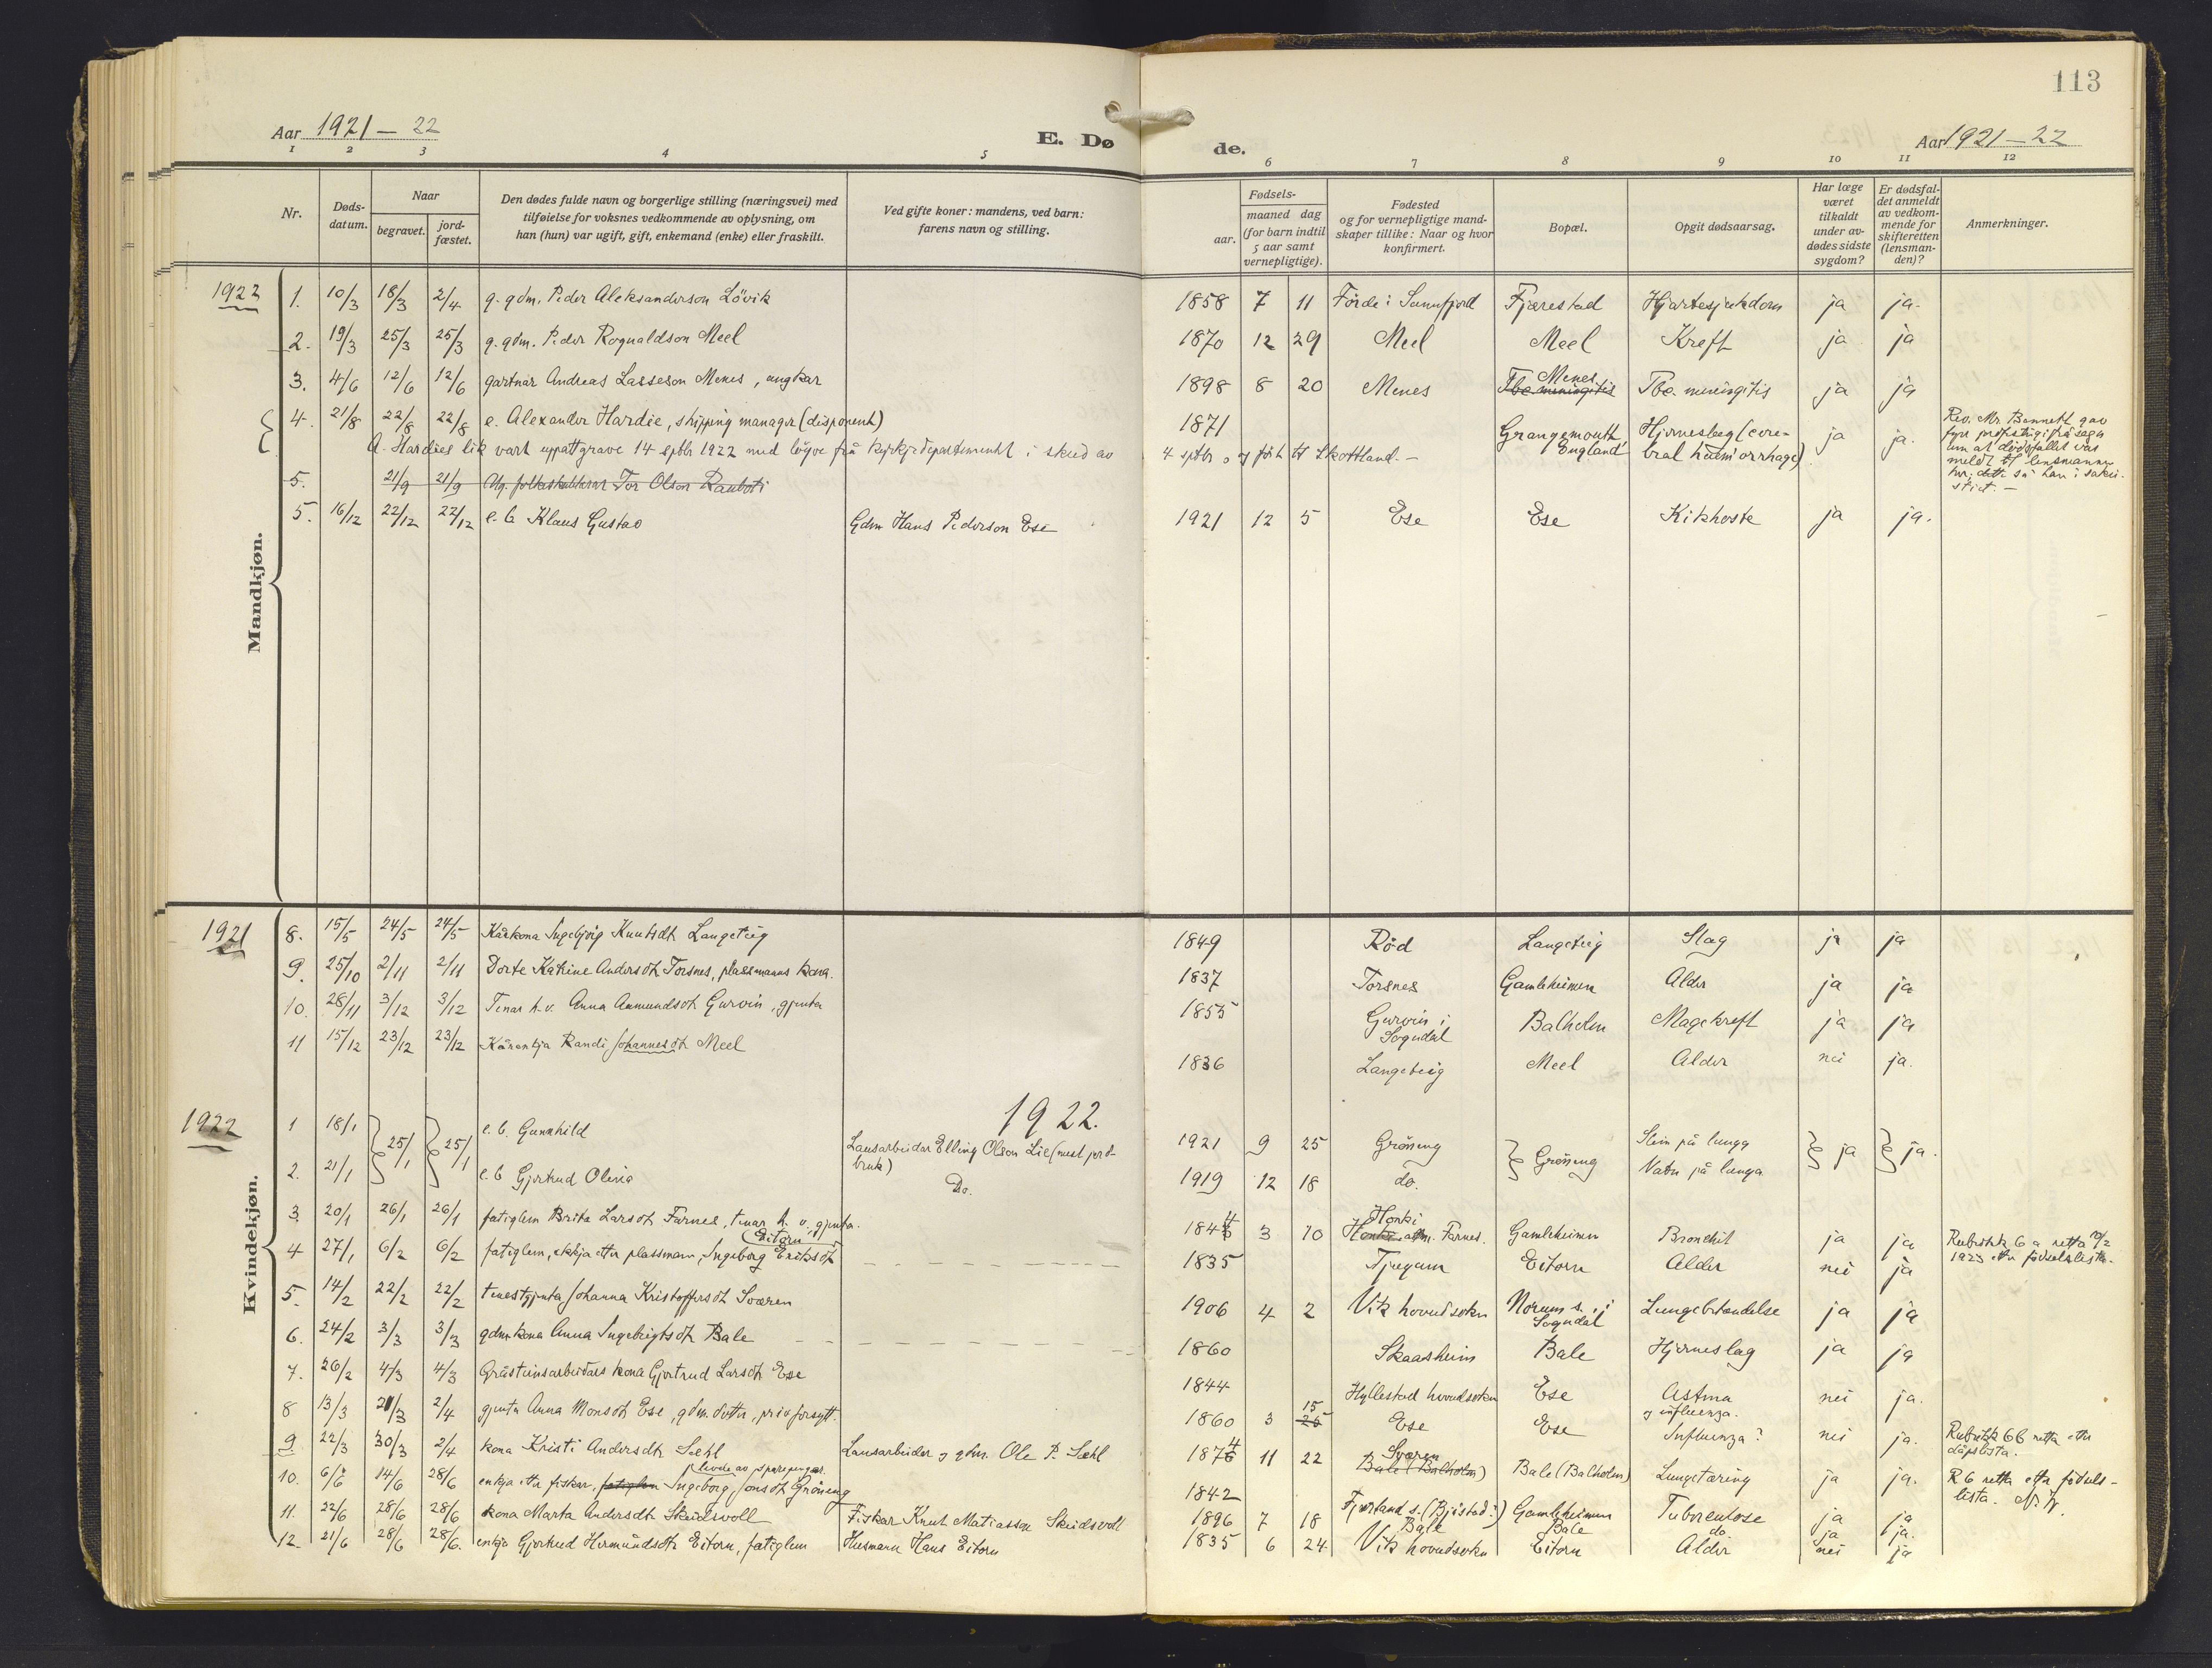 113
Aar 1921 — 22
E. Dø
de.
Aar 1921 — 22
1 2 3 4 5 6 7 8 9 10 11 12
Nr.
Døds-
datum.
Naar
begravet.
jord-
fæstet.
Den dødes fulde navn og borgerlige stilling (næringsvei) med
tilføielse for voksnes vedkommende av oplysning, om
han (hun) var ugift, gift, enkemand (enke) eller fraskilt.
Ved gifte koner: mandens, ved barn:
farens navn og stilling.
Fødsels-
aar.
maaned dag
(for barn indtil
5 aar samt
vernepligtige).
Fødested
og for vernepligtige mand-
skaper tillike: Naar og hvor
konfirmert.
Bopæl.
Opgit dødsaarsag.
Har læge
været
tilkaldt
under av-
dødes sidste
sygdom?
Er dødsfal-
det anmeldt
av vedkom-
mende for
skifteretten
(lensman-
den)?
Anmerkninger.
Mandkjøn.
1922
1. 10/3 18/3 2/4 g. gdm. Peder Aleksanderson Lövik 1858 7 11 Förde i Sunnfjord Fjærestad Hjartesjukdom ja ja.
2. 19/3 25/3 25/3 g. gdm. Peder Rognaldson Meel 1870 12 29 Meel Meel Kreft ja ja
3. 4/6 12/6 12/6 gartnar Andreas Lasseson Menes, ungkar 1898 8 20 Menes Tbc. meningitis Menes Tbc. meningitis ja ja
4. 21/8 22/8 22/8 e. Alexander Hardie, shipping manager (disponent) 1871 Grangemouth, England Hjerneslag (cere-
bral hæmorrhage) ja ja.
A. Hardies lik vart uppattgrave 14 septbr 1922 med löyve frå kyrkjedepartementet i skriv av 4 septbr og fört til Skottland. —
Rev. Mr. Bennett gav
um at dödsfallet var
meldt til lensmannen
5. 21/9 21/9 folkeskulelærar Tor Olson Rauboti
5. 16/12 22/12 22/12 e. b. Klaus Gustav Gdm Hans Pederson Ese 1921 12 5 Ese Ese Kikhoste ja ja.
Kvindekjøn.
1921
8. 15/5 24/5 24/5 Kårkona Ingebjörg Knutsdt. Langeteig 1849 Röd Langeteig Slag ja ja
9. 25/10 2/11 2/11 Dorte Katrine Andersdt. Torsnes, plassmanns kona. 1837 Torsnes Gamleheimen Alder ja ja
10. 28/11 3/12 3/12 Tenar h. v. Anna Aamundsdt. Gurvin, gjenta 1855 Gurvin i
Sogndal Balholm Magekreft ja ja
11 15/12 23/12 23/12 Kårenkja Randi Johannesdt. Meel 1836 Langeteig Meel Alder nei ja.
1922
1922.
1 18/1 25/1 25/1 e. b. Gunnhild Lausarbeidar Elling Olson Lie (mest jord-
bruk) 1921 9 25 Gröneng Gröneng Slim på lunga ja ja.
2. 21/1 e. b Gjertrud Olina Do. 1919 12 18 do. Vatn på lunga
3. 20/1 26/1 26/1 fatiglem Brita Larsdt. Farnes, tenar h. v., gjenta. 1844 3 10 Honki Farnes. Gamleheimen Bronchit ja ja Rubrikk 6 a retta 10/2
1923 etter födselslista.
4 27/1 6/2 6/2 fatiglem, ekkja etter plassmann, Ingeborg Eriksdt. (Eitorn) 1835 Tjugum Eitorn Alder nei ja
5. 14/2 22/2 22/2 tenestgjenta Johanna Kristoffersdt. Sværen 1906 4 2 Vik hovudsokn Norum s. i
Sogndal Lungebetendelse ja ja
6. 24/2 3/3 3/3 gdm kona Anna Ingebrigtsdt. Bale 1860 Skaasheim Bale Hjerneslag ja ja
7. 26/2 4/3 4/3 Gråsteinsarbeidars kona Gjertrud Larsdt. Ese 1844 Hyllestad hovudsokn Ese Astma
og influenza. nei ja.
8 13/3 21/3 2/4 gjenta Anna Monsdt. Ese, gdm. dotter, priv. forsytt. 1860 3 26 15 Ese Ese Influenza? nei ja. Rubrikk 6b retta etter
dåpslista.
9 22/3 30/3 2/4 kona Kristi Andersdt. Sæhl Lausarbeider og gdm. Ole P. Sæhl 1874 11 22 Sværen
Bale (Balholm) Bale (Balholm) Lungetæring ja ja. R 6 retta etter födsels-
lista.
10. 6/6 14/6 28/6 enkja etter fiskar, fatiglem Ingeborg Jonsdt. Gröneng levde av sparepengar. 1842 Fjærland s. (Bjåstad?) Gamleheimen Tuberculose ja ja
11. 22/6 28/6 28/6 kona Marta Andersdt. Skeidsvoll Fiskar Knut Matiasson Skeidsvoll 1896 7 18 Bale Bale do. ja ja.
12 21/6 28/6 28/6. enkja Gjertrud Hermundsdt. Eitorn, fatiglem Husmann Hans Eitorn 1835 6 24 Vik hovudsokn Eitorn Alder nei ja